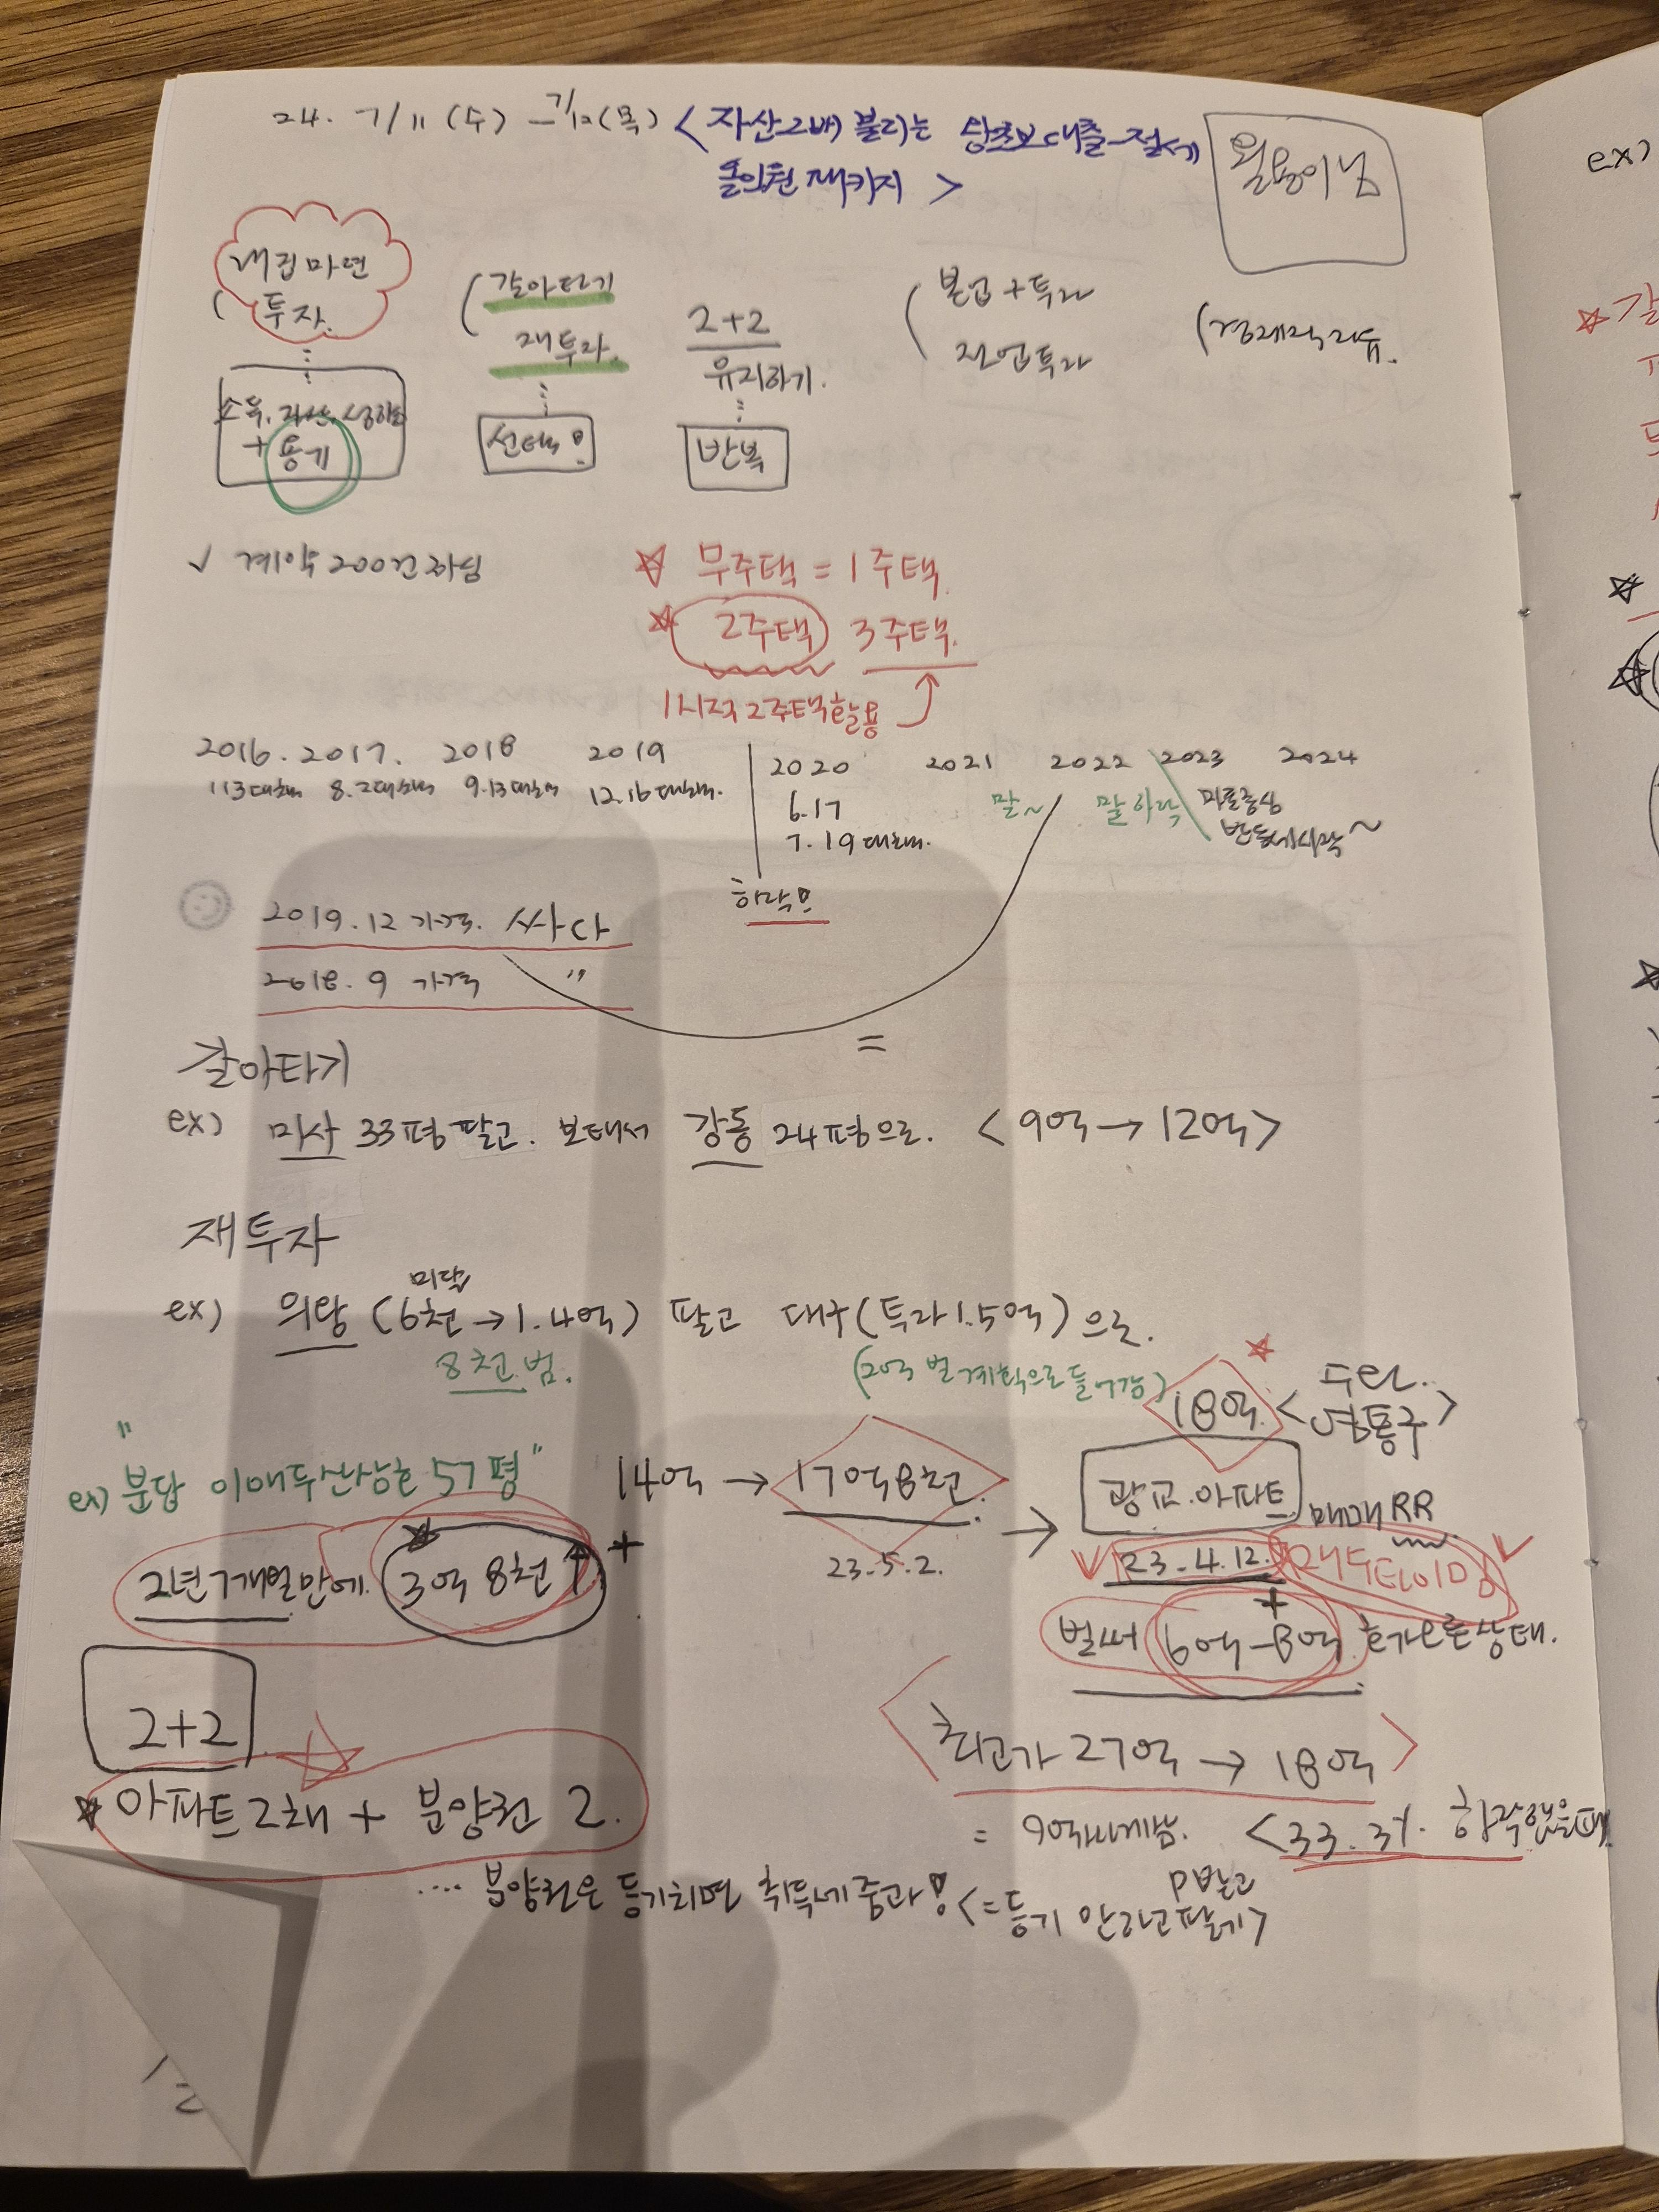 24. 7/11 (수) - 7/12 (목) < 자산2배 불리는 왕초보 대출-절세
올인원 패키지 >
월용이님
내집마련
투자.
소득, 자산, 상황
+ 용기
갈아타기
재투자.
선택!
2+2
유지하기.
반복
본업+투자
전업투자
(경제적자유.
✓ 계약 200건 하심
☆ 무주택 = 1주택
☆ 2주택 3주택.
일시적2주택활용
2016. 2017. 2018 2019 2020 2021 2022 2023 2024
11.3대책 8.2대책 9.13대책 12.16대책. 6.17 말~ 말 하락
7.19대책.
반등시작~
2019.12 가격. 싸다
2018. 9 가격 "
=
갈아타기
ex) 미사 33평 팔고. 보태서 강동 24평으로. <9억→12억>
재투자
미달
ex) 의왕 (6천→1.4억) 팔고 대구(투자1.5억)으로.
8천 범.
(20억 벌 계획으로 들어감)
18억. < 수원. 영통구 >
ex) "분당 이매두산삼호 57평" 14억 → 17억8천.
23.5.2.
→ 광교.아파트 매매RR
2년7개월만에. 3억 8천↑ +
23.4.12.
벌써 6억-8억 호가오른상태.
2+2
☆ 아파트2채 + 분양권 2.
최고가 27억 → 18억
= 9억싸게삼. <33.3%. 하락했을때
.... 분양권은 등기치면 취득세 중과! <=등기 안하고 팔기>
P받고
ex)